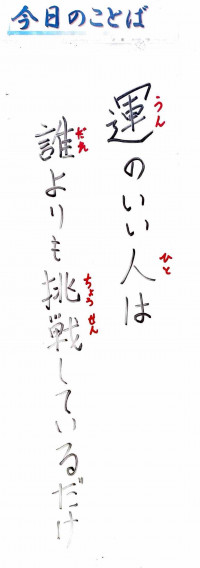 今日のことば
運のいい人は
うん
ひと
誰よりも挑戦しているだけ
だれ
ちょう せん